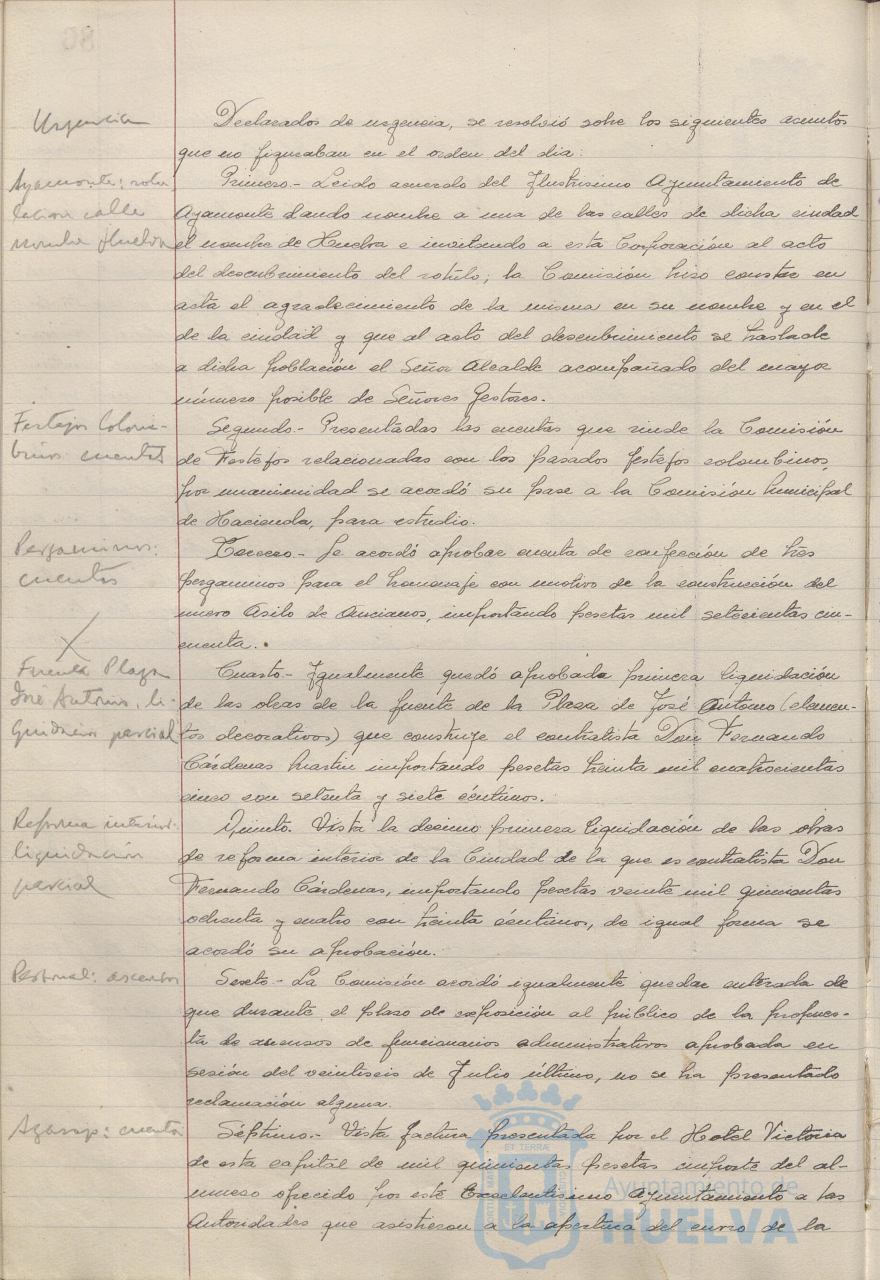 Urgencia
Declarados de urgencia, se resolvió sobre los siguientes asuntos
que no figuraban en el orden del dia:
Ayamonte: rotu
lacion calle
nombre Huelva
Primero.- Leido acuerdo del Ilustrisimo Ayuntamiento de
Ayamonte dando nombre a una de las calles de dicha ciudad
el nombre de Huelva e invitando a esta Corporación al acto
del descubrimiento del rotulo; la Comisión hizo constar en
acta el agradecimiento de la misma en su nombre y en el
de la ciudad y que al acto del descubrimiento se traslade
a dicha población el Señor Alcalde acompañado del mayor
número posible de Señores Gestores.
Festejos Colom-
binos cuentas
Segundo.- Presentadas las cuentas que rinde la Comisión
de Festejos relacionadas con los pasados festejos colombinos,
por unanimidad se acordó su pase a la Comisión Municipal
de Hacienda, para estudio.
Pergaminos:
cuentas
Tercero.- Se acordó aprobar cuenta de confección de tres
pergaminos para el homenaje con motivo de la construcción del
nuevo Asilo de Ancianos, importando pesetas mil setecientas cin-
cuenta.
X
Fuente Plaza
José Antonio, li-
quidacion parcial
Cuarto.- Igualmente quedó aprobada primera liquidación
de las obras de la fuente de la Plaza de José Antonio (elemen-
tos decorativos) que construye el contratista Don Fernando
Cárdenas Martin importando pesetas treinta mil cuatrocientas
cinco con setenta y siete céntimos.
Reforma interior:
liquidación
parcial
Quinto. Vista la decimo primera liquidación de las obras
de reforma interior de la Ciudad de la que es contratista Don
Fernando Cárdenas, importando pesetas veinte mil quinientas
ochenta y cuatro con treinta céntimos, de igual forma se
acordó su aprobación.
Personal: ascensos
Sexto.- La Comisión acordó igualmente quedar enterada de
que durante el plazo de exposición al público de la propues-
ta de ascensos de funcionarios administrativos aprobada en
sesión del veintiseis de Julio último, no se ha presentado
reclamación alguna.
Agasajo: cuenta
Séptimo.- Vista factura presentada por el Hotel Victoria
de esta capital de mil quinientas pesetas importe del al-
muerzo ofrecido por este Excelentisimo Ayuntamiento a las
Autoridades que asistieron a la apertura del curso de la
Ayuntamiento de
HUELVA